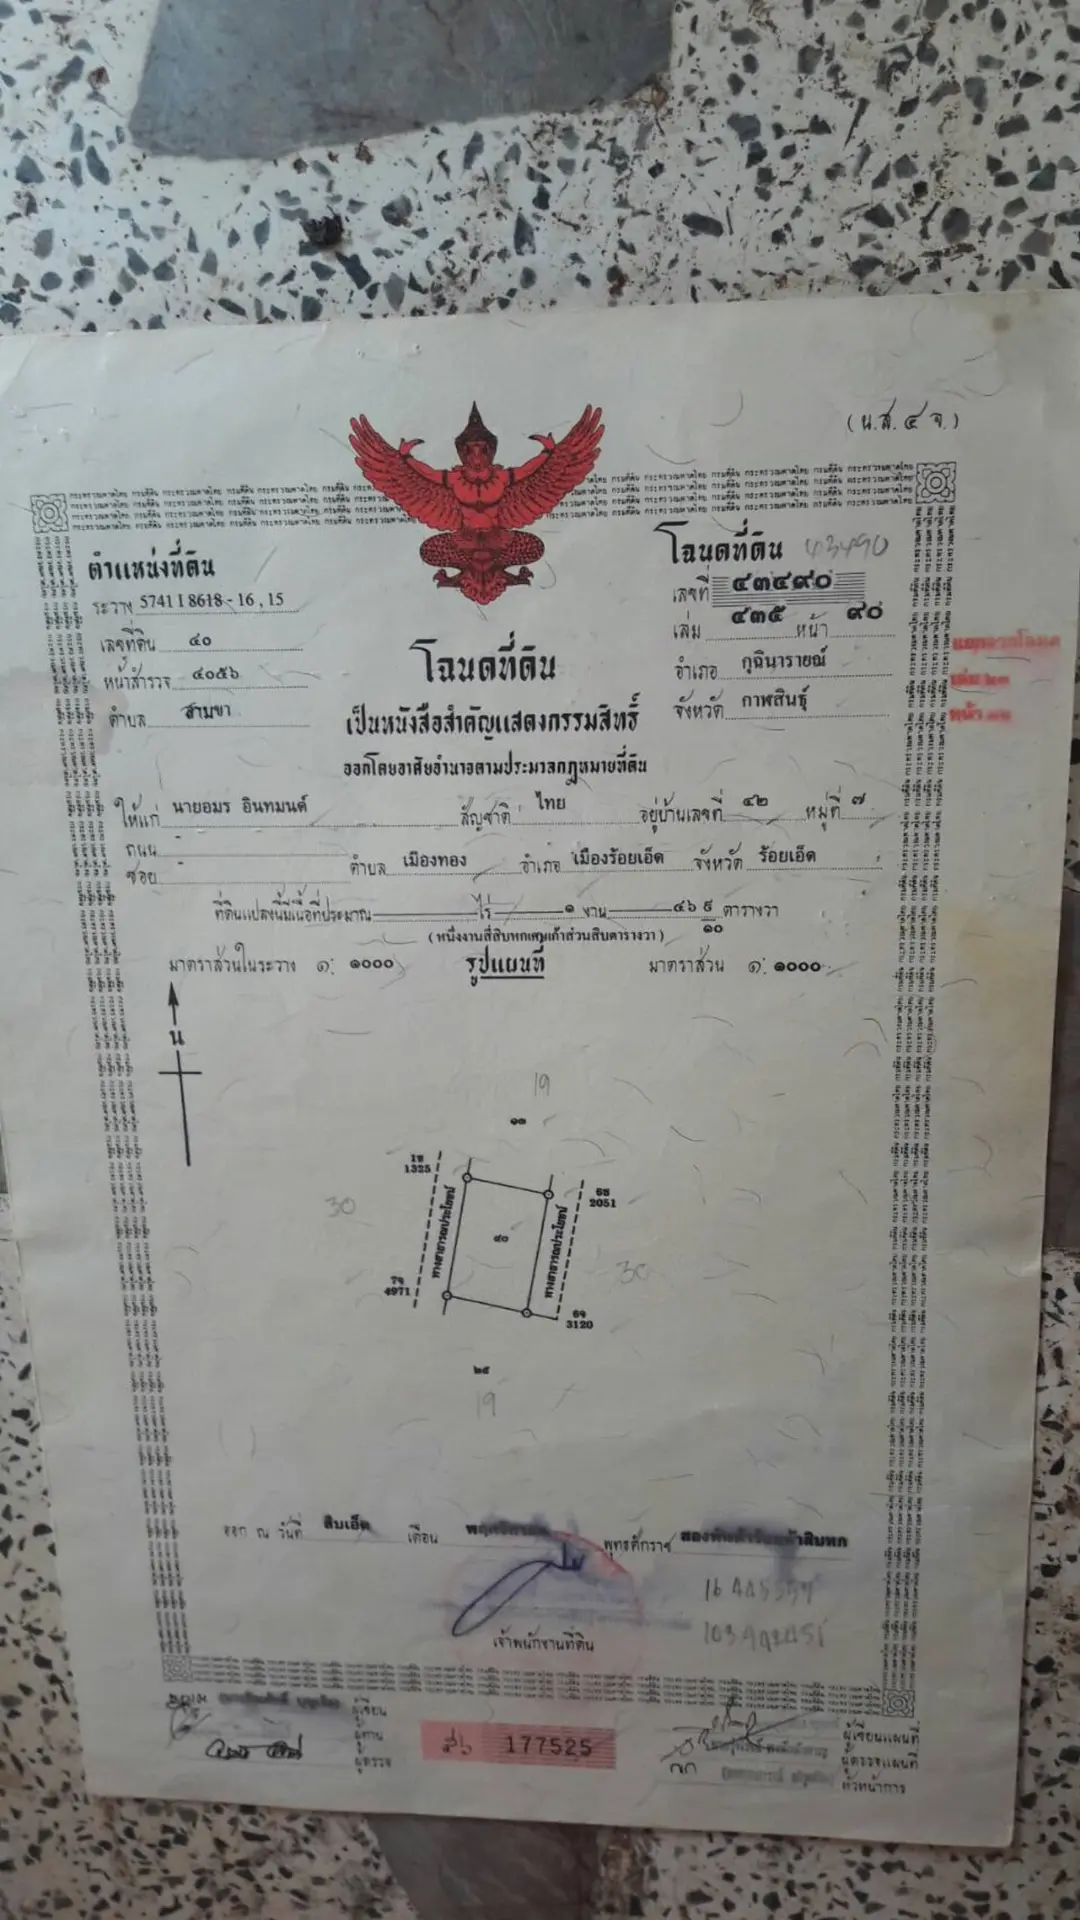 (น.ส. ๔ จ.)
ตำแหน่งที่ดิน
ระวาง 5741 I 8618 - 16 , 15
เลขที่ดิน ๔๐
หน้าสำรวจ ๔๐๕๖
ตำบล สามขา
โฉนดที่ดิน 43490
เลขที่ ๔๓๔๙๐
เล่ม ๔๓๕ หน้า ๙๐
อำเภอ กุฉินารายณ์
จังหวัด กาฬสินธุ์
โฉนดที่ดิน
เป็นหนังสือสำคัญแสดงกรรมสิทธิ์
ออกโดยอาศัยอำนาจตามประมวลกฎหมายที่ดิน
ให้แก่ นายอมร อินทมนต์ สัญชาติ ไทย อยู่บ้านเลขที่ ๔๒ หมู่ที่ ๗
ถนน -
ซอย - ตำบล เมืองทอง อำเภอ เมืองร้อยเอ็ด จังหวัด ร้อยเอ็ด
ที่ดินแปลงนี้มีเนื้อที่ประมาณ ไร่ ๑ งาน ๔๖ ๙/๑๐ ตารางวา
(หนึ่งงานสี่สิบหกเศษเก้าส่วนสิบตารางวา)
มาตราส่วนในระวาง ๑: ๑๐๐๐ รูปแผนที่ มาตราส่วน ๑: ๑๐๐๐
น
19
๑๓
1ช
1325
6ช
2051
ทางสาธารณประโยชน์
ทางสาธารณประโยชน์
30
๔๐
30
7จ
4971
6จ
3120
๒๕
19
ออก ณ วันที่ สิบเอ็ด เดือน พฤศจิกายน พุทธศักราช สองพันห้าร้อยห้าสิบหก
เจ้าพนักงานที่ดิน
ผู้เขียน
ผู้ทาน
ผู้ตรวจ
177525
ผู้เขียนแผนที่
ผู้ตรวจแผนที่
หัวหน้าการ